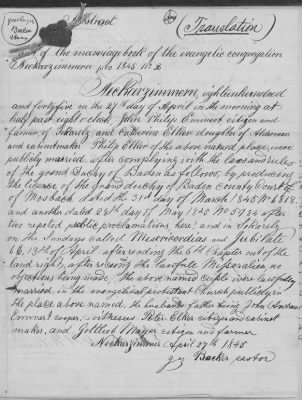 Abstract
(Translation)
out of the marriage book of the evangelic congregation
Neckarzimmern pro 1845 No 2
Neckarzimmern, eighteenhundred
and fortyfive in the 27th day of April in the morning at
half past eight o'clock, John Philip Emmert citizen and
farmer, of and Catherine Elker daughter of Alderman
and cabinetmaker Philip Elker of the above named place, were
publicly married, after complying with the laws and rules
of the grand Duchy of Baden as follows, by producing
the licence of the grand duchy of Baden county Court of
of Mosbach dated the 31st day of March 1845 No 6818.
and another dated 28th day of May 1845 No
two repeted public proclamations here, and in
on the Sundays called Misericordias and Jubilate
6 13th of April after reading the 6th Chapter out of the
land right, after being the lawfull no
objections being made. The above named couple were lawfully
married, in the evangelical protestant Church publicly in
the place above named, the husbands father being John
Emmert cooper, witnesses Peter Elker citizen and cabinet
maker, and Gottlieb Mayer citizen and farmer
Neckarzimmern April 27th 1845
Becker pastor